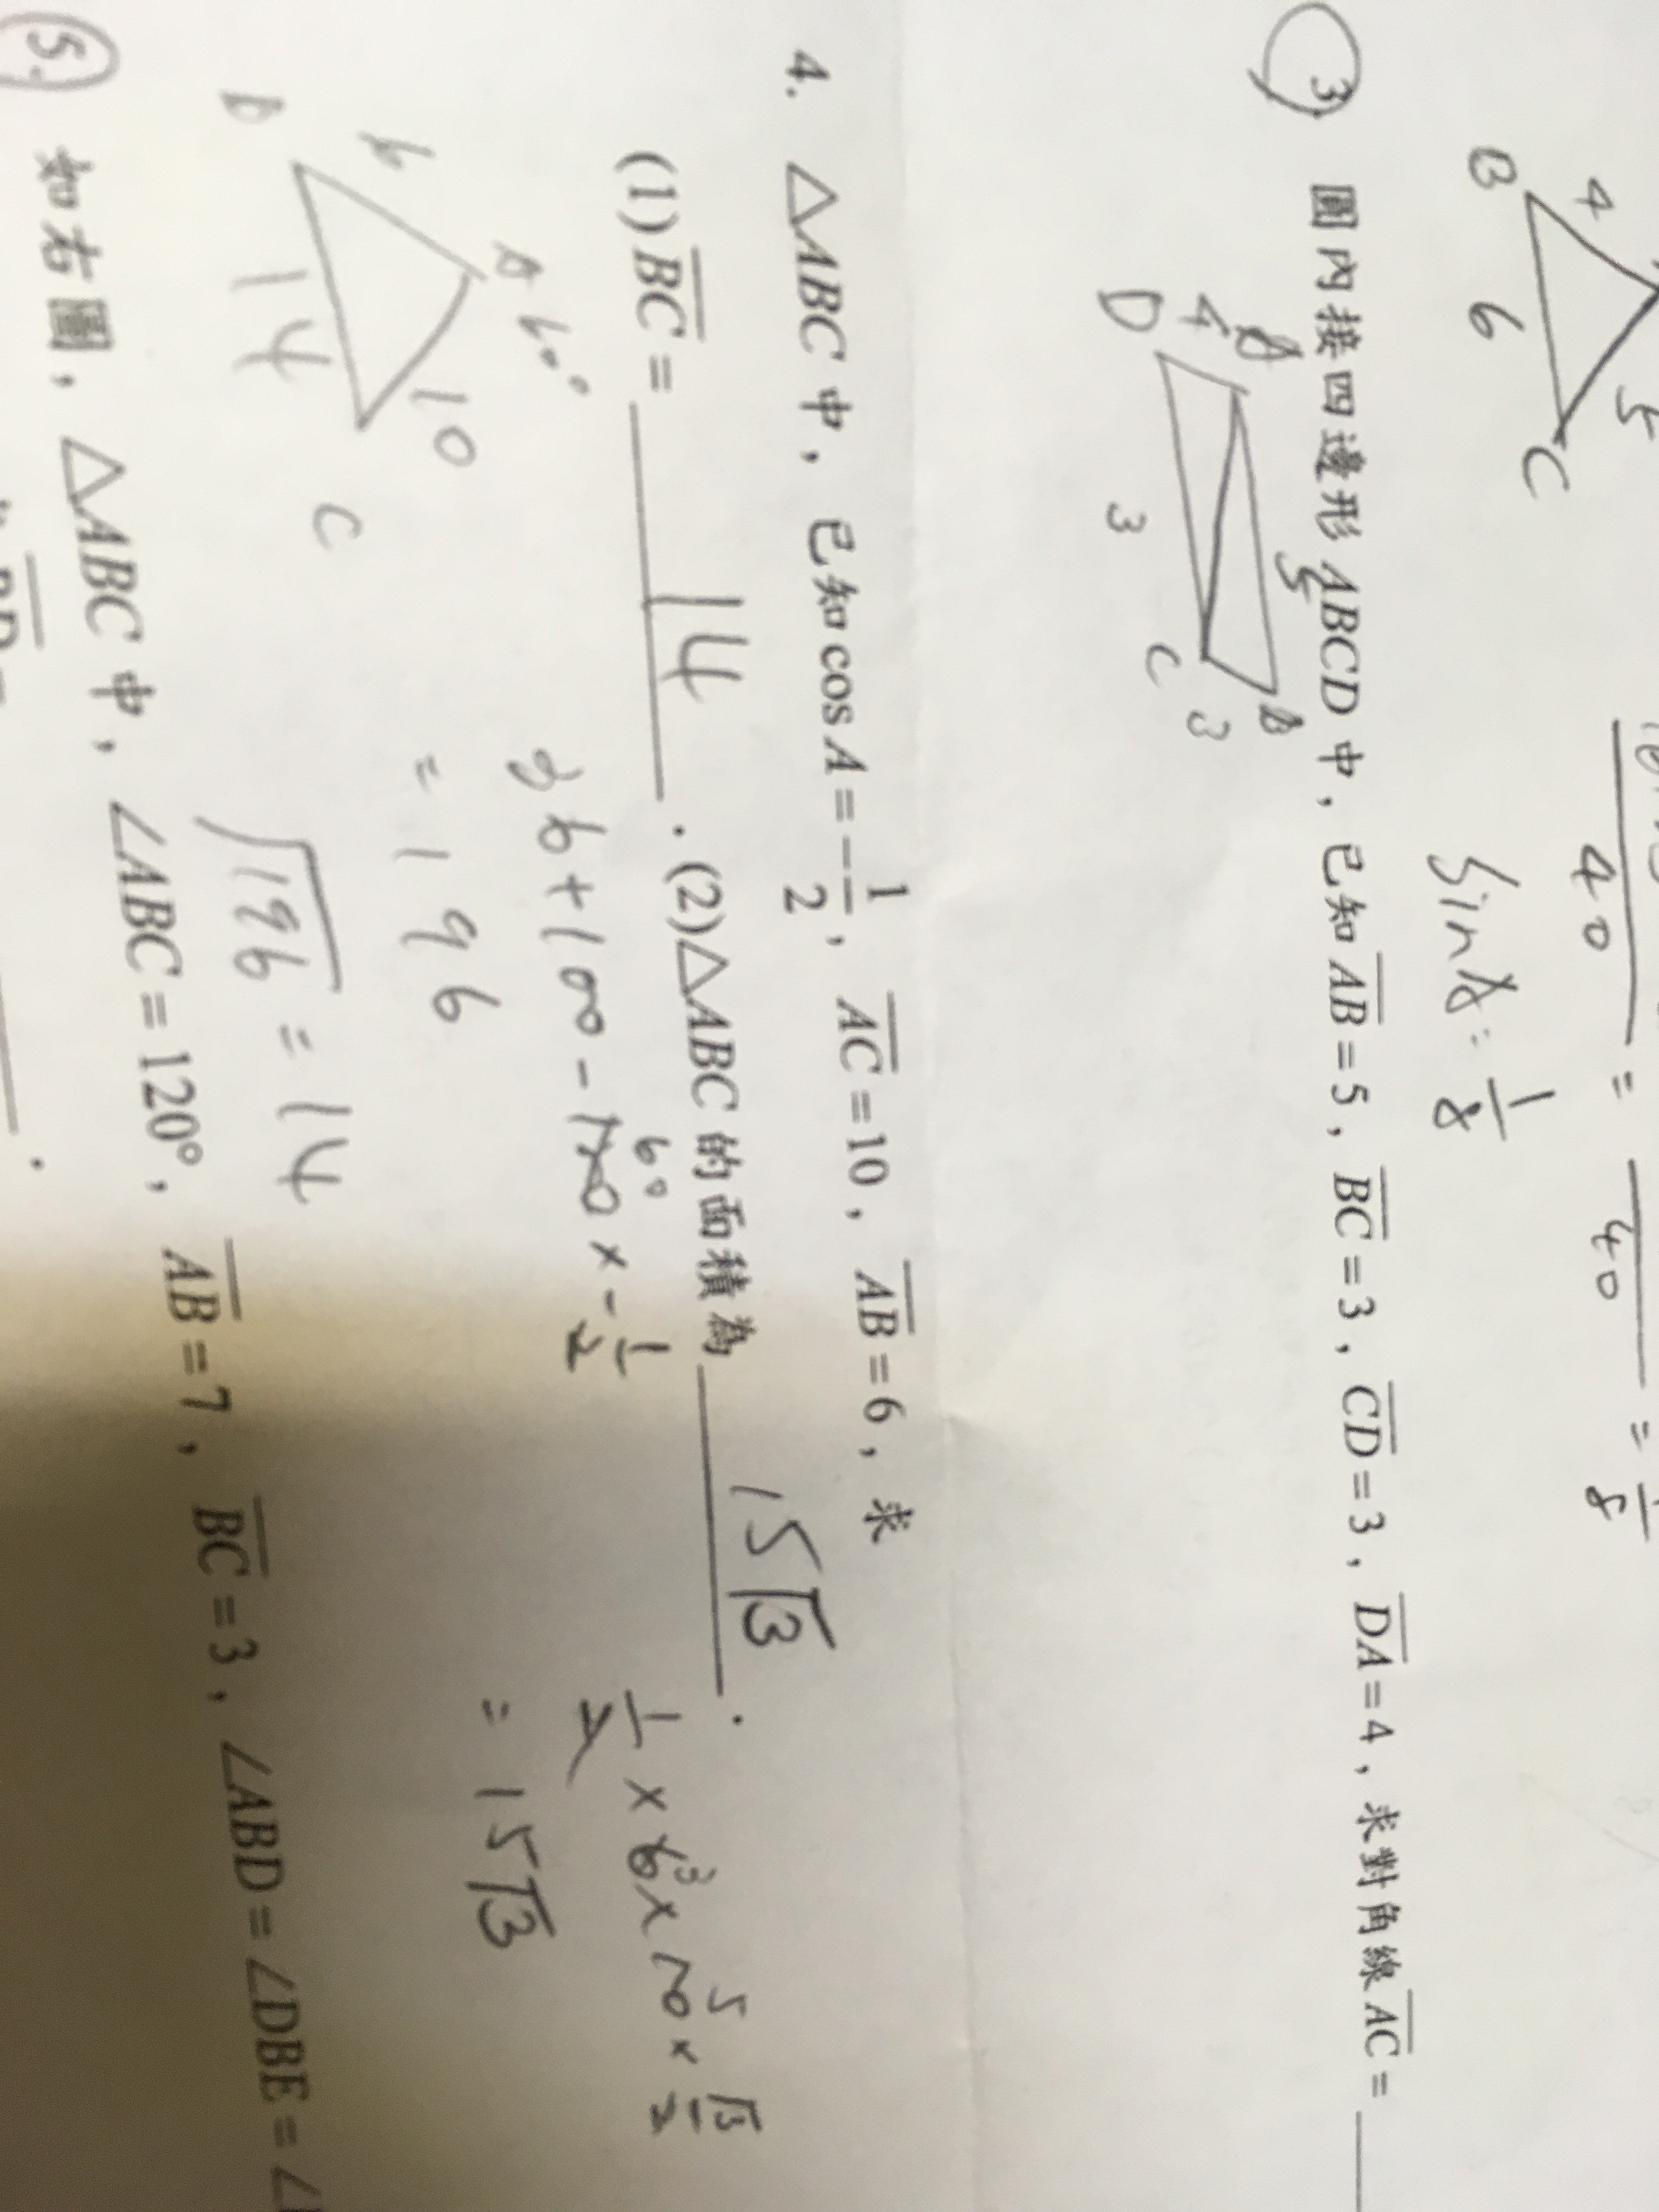 4
A
5
B
6
C
40
=
40
=
1
8
sinA =
1
8
3. 圓內接四邊形 ABCD 中，已知 AB = 5，BC = 3，CD = 3，DA = 4，求對角線 AC =
A
4
D
5
3
C
3
B
4. △ABC 中，已知 cos A = -1/2，AC = 10，AB = 6，求
(1) BC = 14 . (2) △ABC 的面積為 15√3 .
b
A 60°
10
14
C
36 + 100 - 120 × -1/2
60
= 196
√196 = 14
1/2 × 6 × 10 × √3/2
3
5
= 15√3
5. 如右圖，△ABC 中，∠ABC = 120°，AB = 7，BC = 3，∠ABD = ∠DBE = ∠